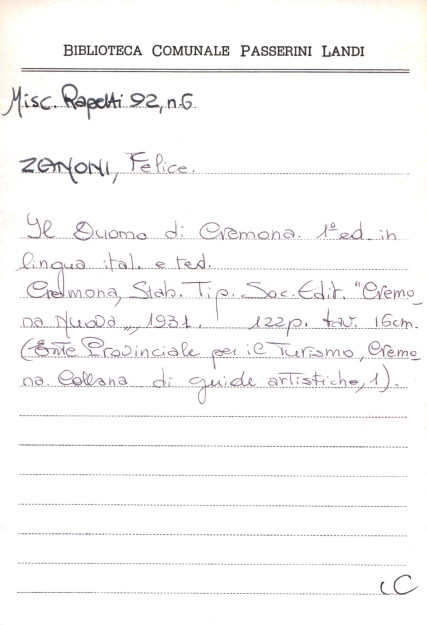 BIBLIOTECA COMUNALE PASSERINI LANDI
Misc. Rapetti 92, n.6
ZANONI, Felice.
Il Duomo di Cremona. 1ª ed. in
lingua ital. e ted.
Cremona, Stab. Tip. Soc. Edit. "Cremo_
na Nuova„, 1931. 122p. tav. 16cm.
(Ente Provinciale per il Turismo, Cremo_
na Collana di guide artistiche, 1).